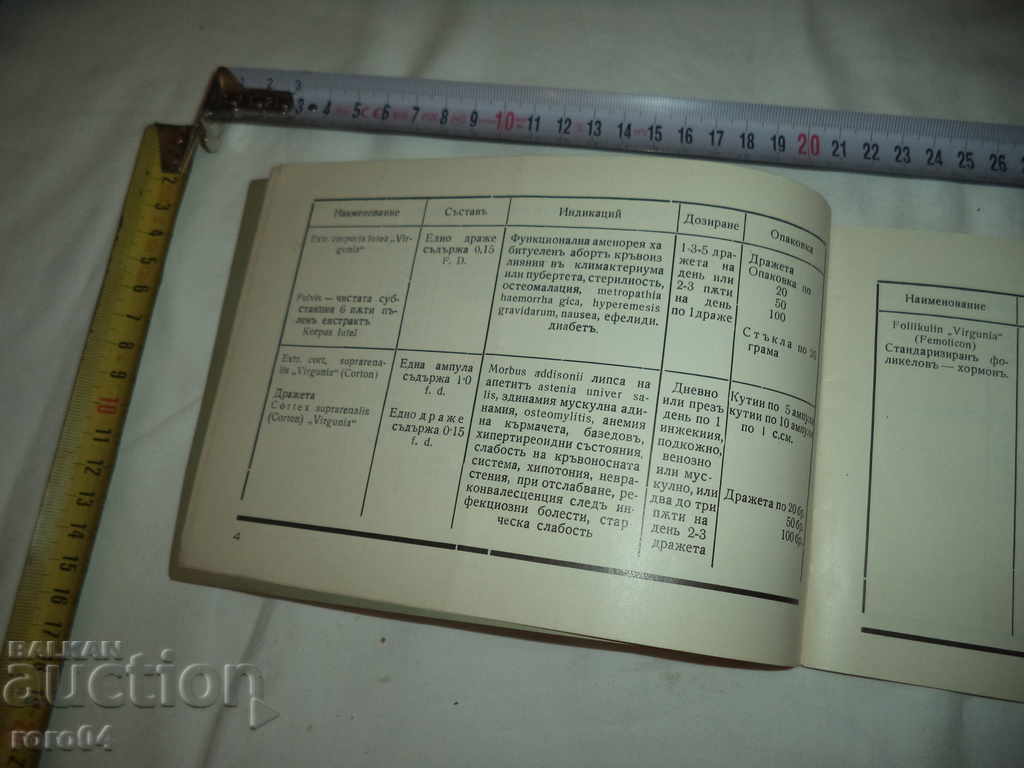 Наименование
Съставъ
Индикаций
Дозиране
Опаковка
Extr. corporis lutea „Vir-
gunia“
Pulvis — чистата суб-
станция 6 пѫти пъ-
ленъ екстрактъ
Korpus lutel
Едно драже
съдържа 0,15
F. D.
Функционална аменорея ха
битуеленъ абортъ кръвоиз
лияния въ климактериума
или пубертета, стерилность,
остеомалация, metropathia
haemorrha gica, hyperemesis
gravidarum, nausea, ефелиди,
диабетъ.
1-3-5 дра-
жета на
день или
2-3 пѫти
на день
по 1 драже
Дражета
Опаковка по
20
50
100
Стъкла по
грама
Extr. cort. suprarena-
lis „Virgunia“ (Corton)
Дражета
Cortex suprarenalis
(Corton) „Virgunia“
Една ампула
съдържа 1·0
f. d.
Едно драже
съдържа 0·15
f. d.
Morbus addisonii липса на
апетитъ astenia univer sa-
lis, эдинамия мускулна ади-
намия, osteomylitis, анемия
на кърмачета, базедовъ,
хипертиреоидни състояния,
слабость на кръвоносната
система, хипотония, невра-
стения, при отслабване, ре-
конвалесценция следъ ин-
фекциозни болести, стар-
ческа слабость
Дневно
или презъ
день по 1
инжекиия,
подкожно,
венозно
или мус-
кулно, или
два до три
пѫти на
день 2-3
дражета
Кутии по 5 ампули
кутии по 10 ампули
по 1 с.см.
Дражета по 20 бр.
50 бр.
100 бр.
4
Наименование
Follikulin „Virgunia“
(Femolicon)
Стандаризиранъ фо-
ликеловъ — хормонъ.
1 2 3
3 4 5 6 7 8 9 10 11 12 13 14 15 16 17 18 19 20 21 22 23 24 25 26
2 3 4 5 6 7 8 9 10 11 12 13 14 15 16 17
BALKAN
auction
roro04